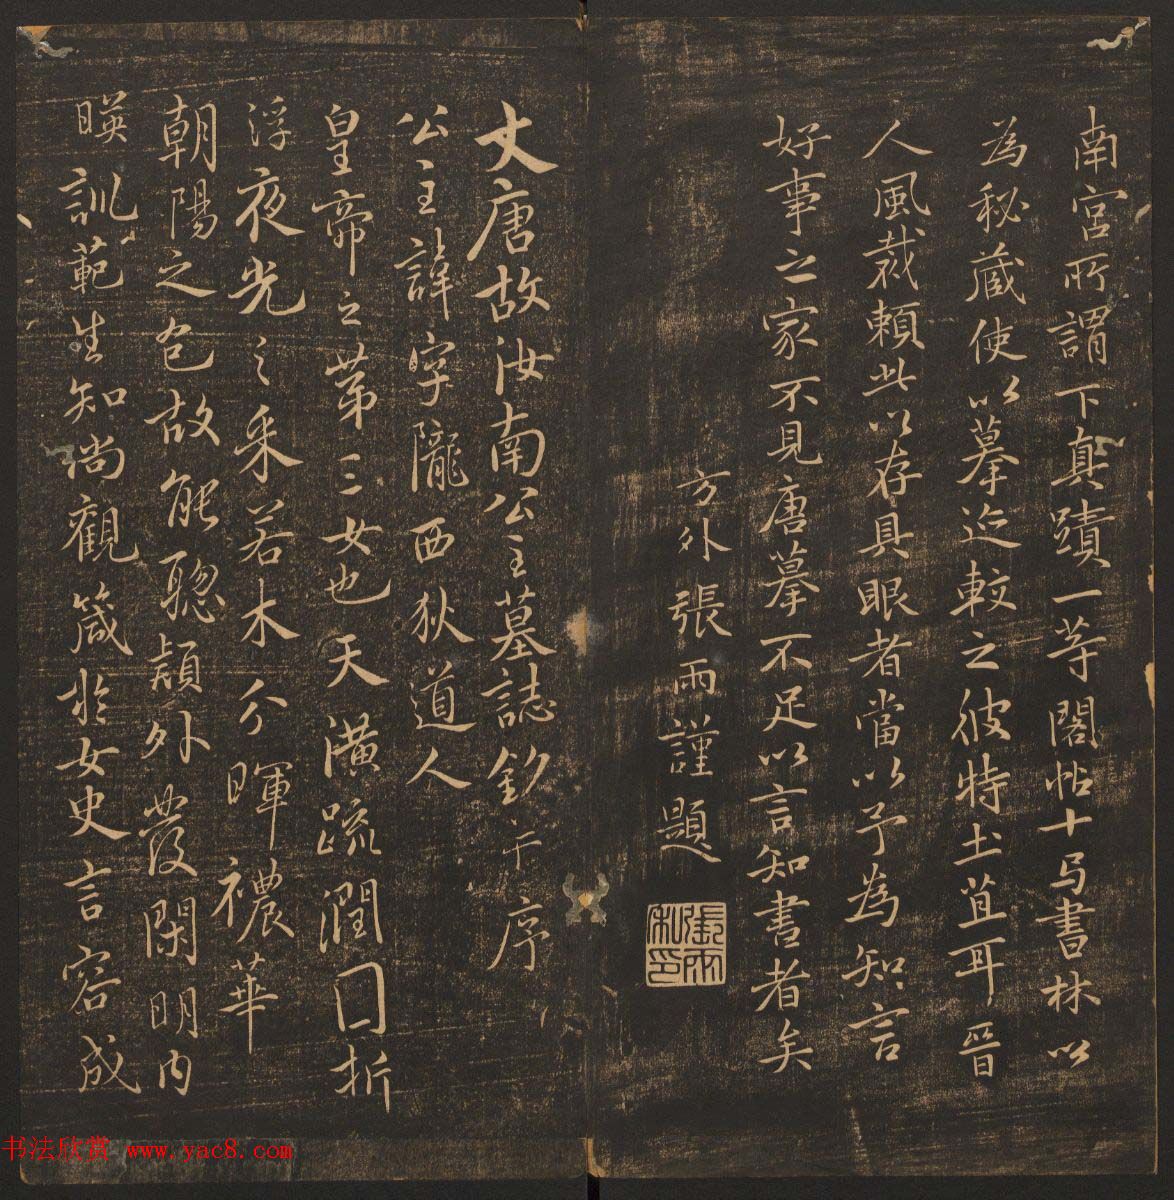 南宫所謂下真蹟一等閣帖十与書林以
為秘藏使以摹迹較之彼特土苴耳晉
人風裁賴此以存具眼者當以予為知言
好事之家不見唐摹不足以言知書者矣
方外張雨謹題
張雨私印
大唐故汝南公主墓誌銘并序
公主諱字隴西狄道人
皇帝之第三女也天潢疏潤圓折
浮夜光之采若木分暉禯華
朝陽之色故能聰穎外發閑明内
暎訓範生知尚觀箴於女史言容成
书法欣赏 www.yac8.com